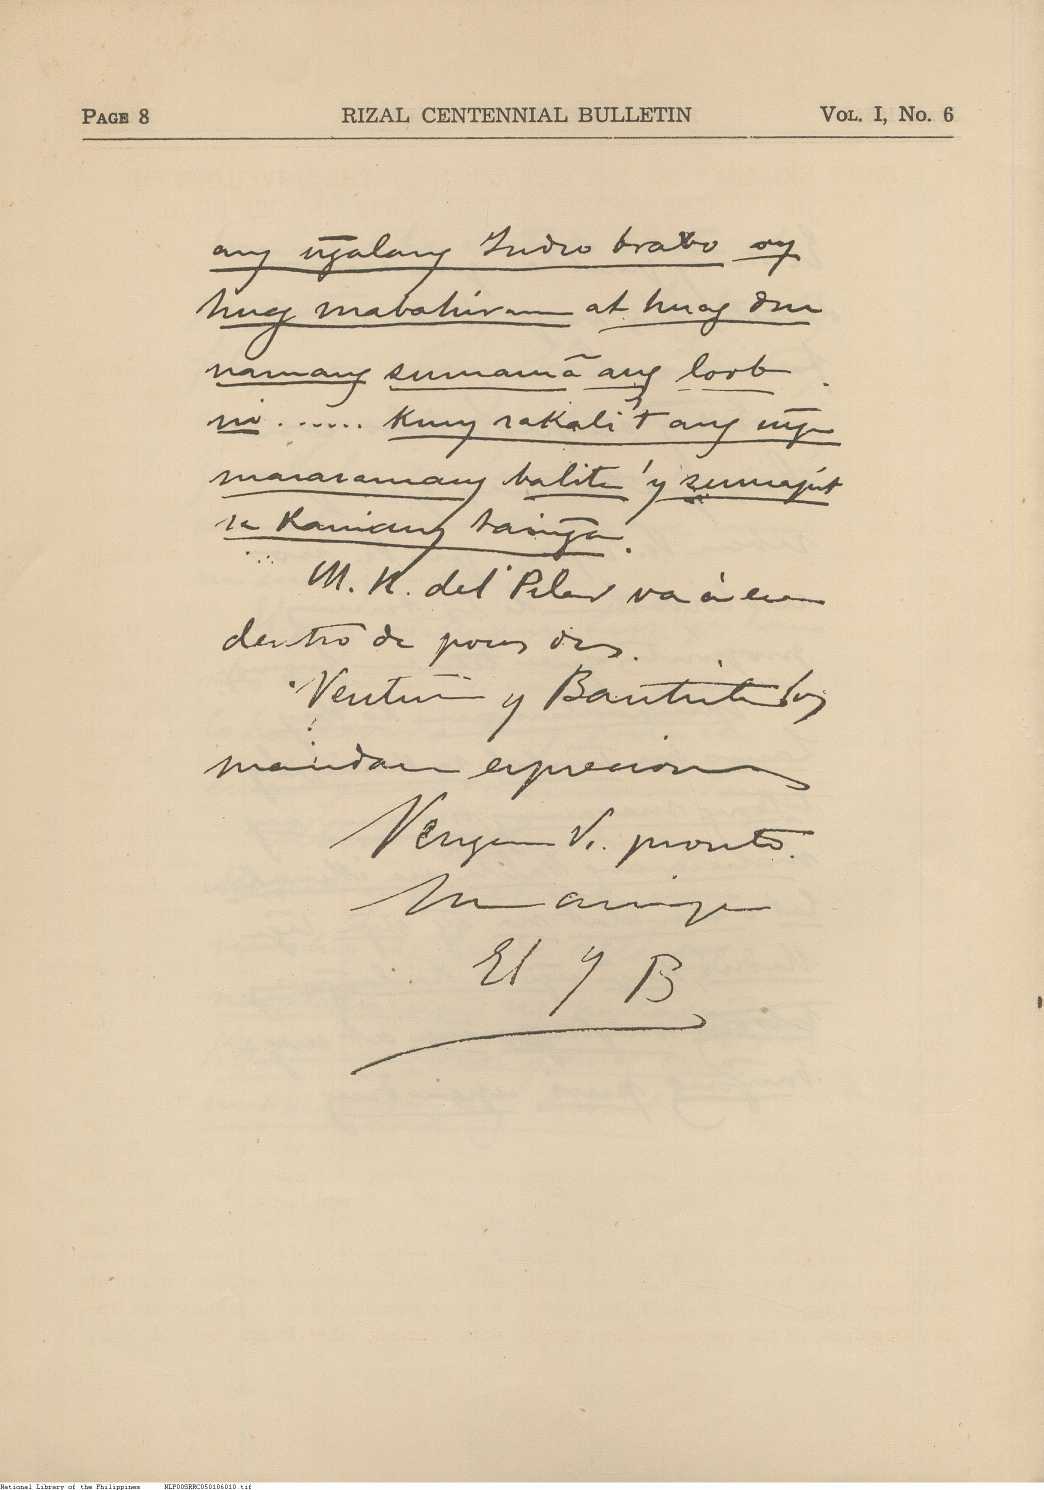 PAGE 8 RIZAL CENTENNIAL BULLETIN VOL. I, No. 6
ang ñgalang Indio bravo ay
huag mabahiran at huag din
namang sumamã ang loob
ni ...... kung sakali't ang mg̃a
masasamang balita'y sumapit
sa kaniang taiñga.
M. H. del Pilar va á esa
dentro de pocos dias.
Ventura y Bautista los
mandan expresiones
Vengan Vs. pronto.
Su amigo
El Y B
National Library of the Philippines NLP00SRRC050106010.tif